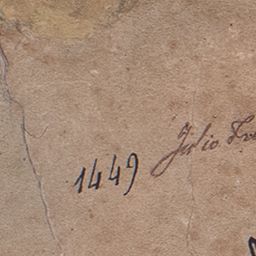 1449 Julio